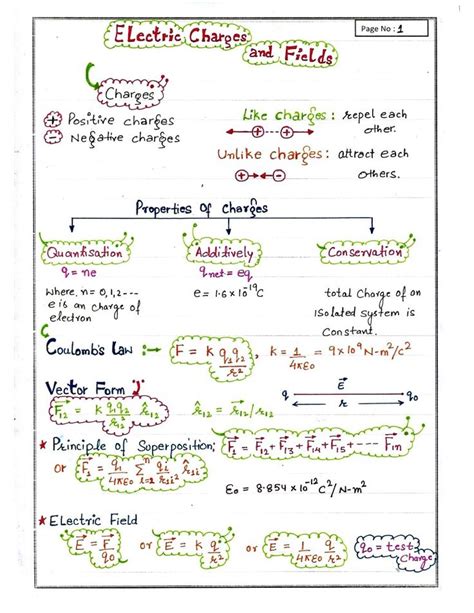 Page No : 1
Electric Charges
and Fields
Charges
⊕ Positive charges
⊖ Negative charges
Like charges : repel each
other.
Unlike charges: attract each
others.
Properties Of Charges
Quantisation
Additively
Conservation
q = ne
qnet = eq
where, n = 0,1,2---
e is an charge of
electron
e = 1.6 x 10⁻¹⁹C
total Charge of an
isolated system is
Constant.
Coulomb's Law :→ F = K q₁q₂/r², K = 1/4πε₀ = 9x10⁹ N-m²/c²
Vector Form
F⃗₁₂ = K q₁q₂/r²₁₂ r̂₁₂
r̂₁₂ = r⃗₁₂/r₁₂
q E⃗ q₀
r
★ Principle of Superposition; F⃗₁ = F⃗₁₂+F⃗₁₃+F⃗₁₄+F⃗₁₅+---- F⃗₁n
or F⃗₁ = q₁/4πε₀ Σⁿi=2 qi/r₁i² r̂₁i
ε₀ = 8.854 x10⁻¹² C²/N-m²
★ Electric Field
E⃗ = F⃗/q₀ or E⃗ = K q/r² or E⃗ = 1/4πε₀ q/r²
q₀ = test
Charge